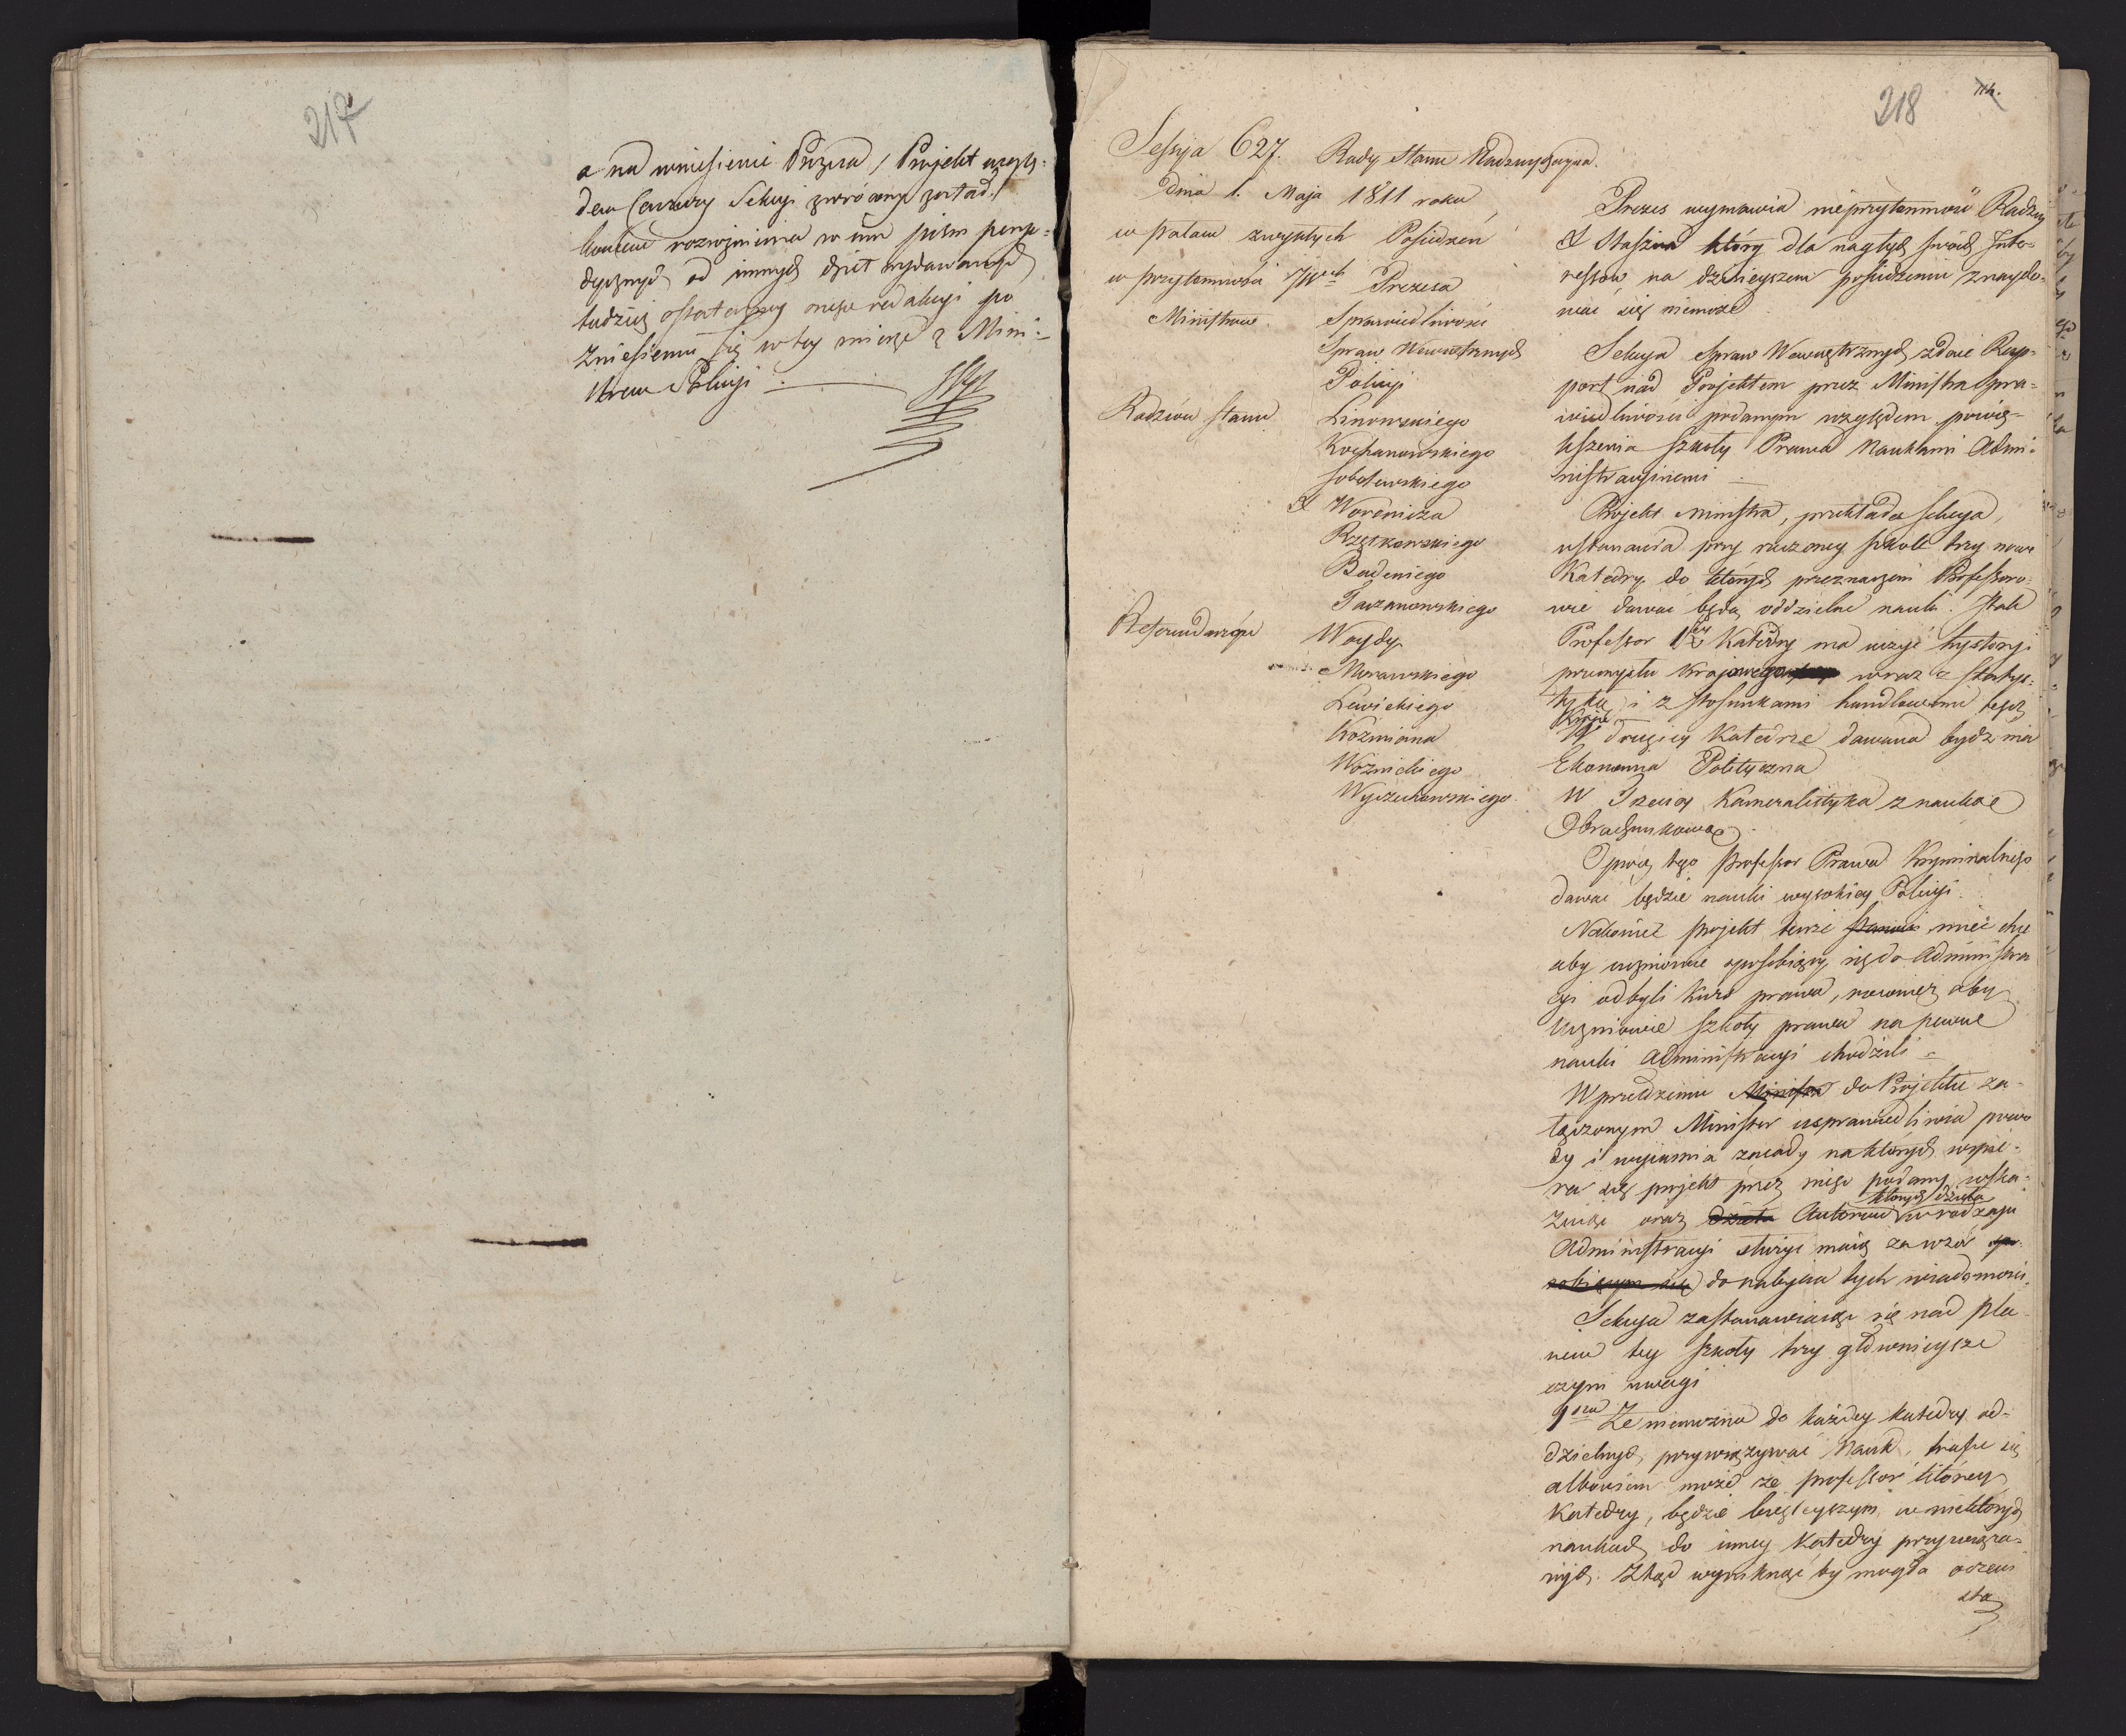 217
a na wniesienie Prezesa / Projekt wzglę-
dem Cenzury Sekcyi zwrócony został /
końcem rozróżnienia w nim pism peryo-
dycznych od innych dzieł wydawanych
tudzież ostateczney onego redakcyi po
zniesieniu się w tey mierze z Mini-
strem Policyi
218
Sessya 627. Rady Stanu Nadzwyczayna.
Dnia 1. Maja 1811 roku
w pałacu zwykłych Posiedzeń
w przytomności JW Prezesa
Ministrów Sprawiedliwości
Spraw Wewnętrznych
Policyi
Radców Stanu Linowskiego
Kochanowskiego
Sobolewskiego
X Woronicza
Badeniego
Referendarzów Woydy
Morawskiego
Lewickiego
Koźmiana
Woźnickiego
Wyczechowskiego
Prezes wymawia nieprzytomność Radcy
X Staszica który dla nagłych swoich Inte-
ressów na dzisieyszem posiedzeniu znaydo-
wać się niemoże
Sekcya Spraw Wewnętrznych zdaie Rap-
port nad Projektem przez Ministra Spra-
wiedliwości podanym względem powię-
kszenia szkoły Prawa Naukami Admi-
nistracyinemi
Projekt Ministra, przekłada Sekcya,
ustanawia przy rzeczoney szkole trzy nowe
Katedry do których przeznaczeni Professoro-
wie dawać będą oddzielne nauki. Y tak
Professor 1szey Katedry ma uczyć hystoryi
przemysłu Krajowego wraz z statys-
tyką i z stosunkami handlowemi tegoż
Kraju
W drugiey Katedrze dawana bydź ma
Ekonomia Polityczna
W Trzeciey Kameralistyka z nauką
Obrachunkową.
Oprócz tego Professor Prawa Kryminalnego
dawać będzie nauki wysokiey Policyi.
Nakoniec projekt tenże stanowi mieć chce
aby uczniowie sposobiący się do Administra
cyi odbyli Kurs prawa, również aby
Uczniowie szkoły prawa na pewne
nauki Administracyi chodzili
W poprzedzeniu Ministra do Projektu za-
łączonym Minister usprawiedliwia powo
dy i wyiaśnia zasady na których wspie-
ra się projekt przez niego podany, wska-
których dzieła
zuiąc oraz dzieła Autorów w rodzaju
Administracyi służyć maią za wzór spo-
sobiącym się do nabycia tych wiadomości.
Sekcya zastanawiaiąc się nad pla-
nem tey szkoły trzy główniejsze
czyni uwagi
1sza Że niemożna do każdey katedry od-
dzielnych przywiązywać Nauk, trafić się
albowiem może że professor którey
Katedry, będzie biegleyszym w niektórych
naukach do inney Katedry przywiąza-
nych. Ztąd wyniknąć by mogła oczewi
sta